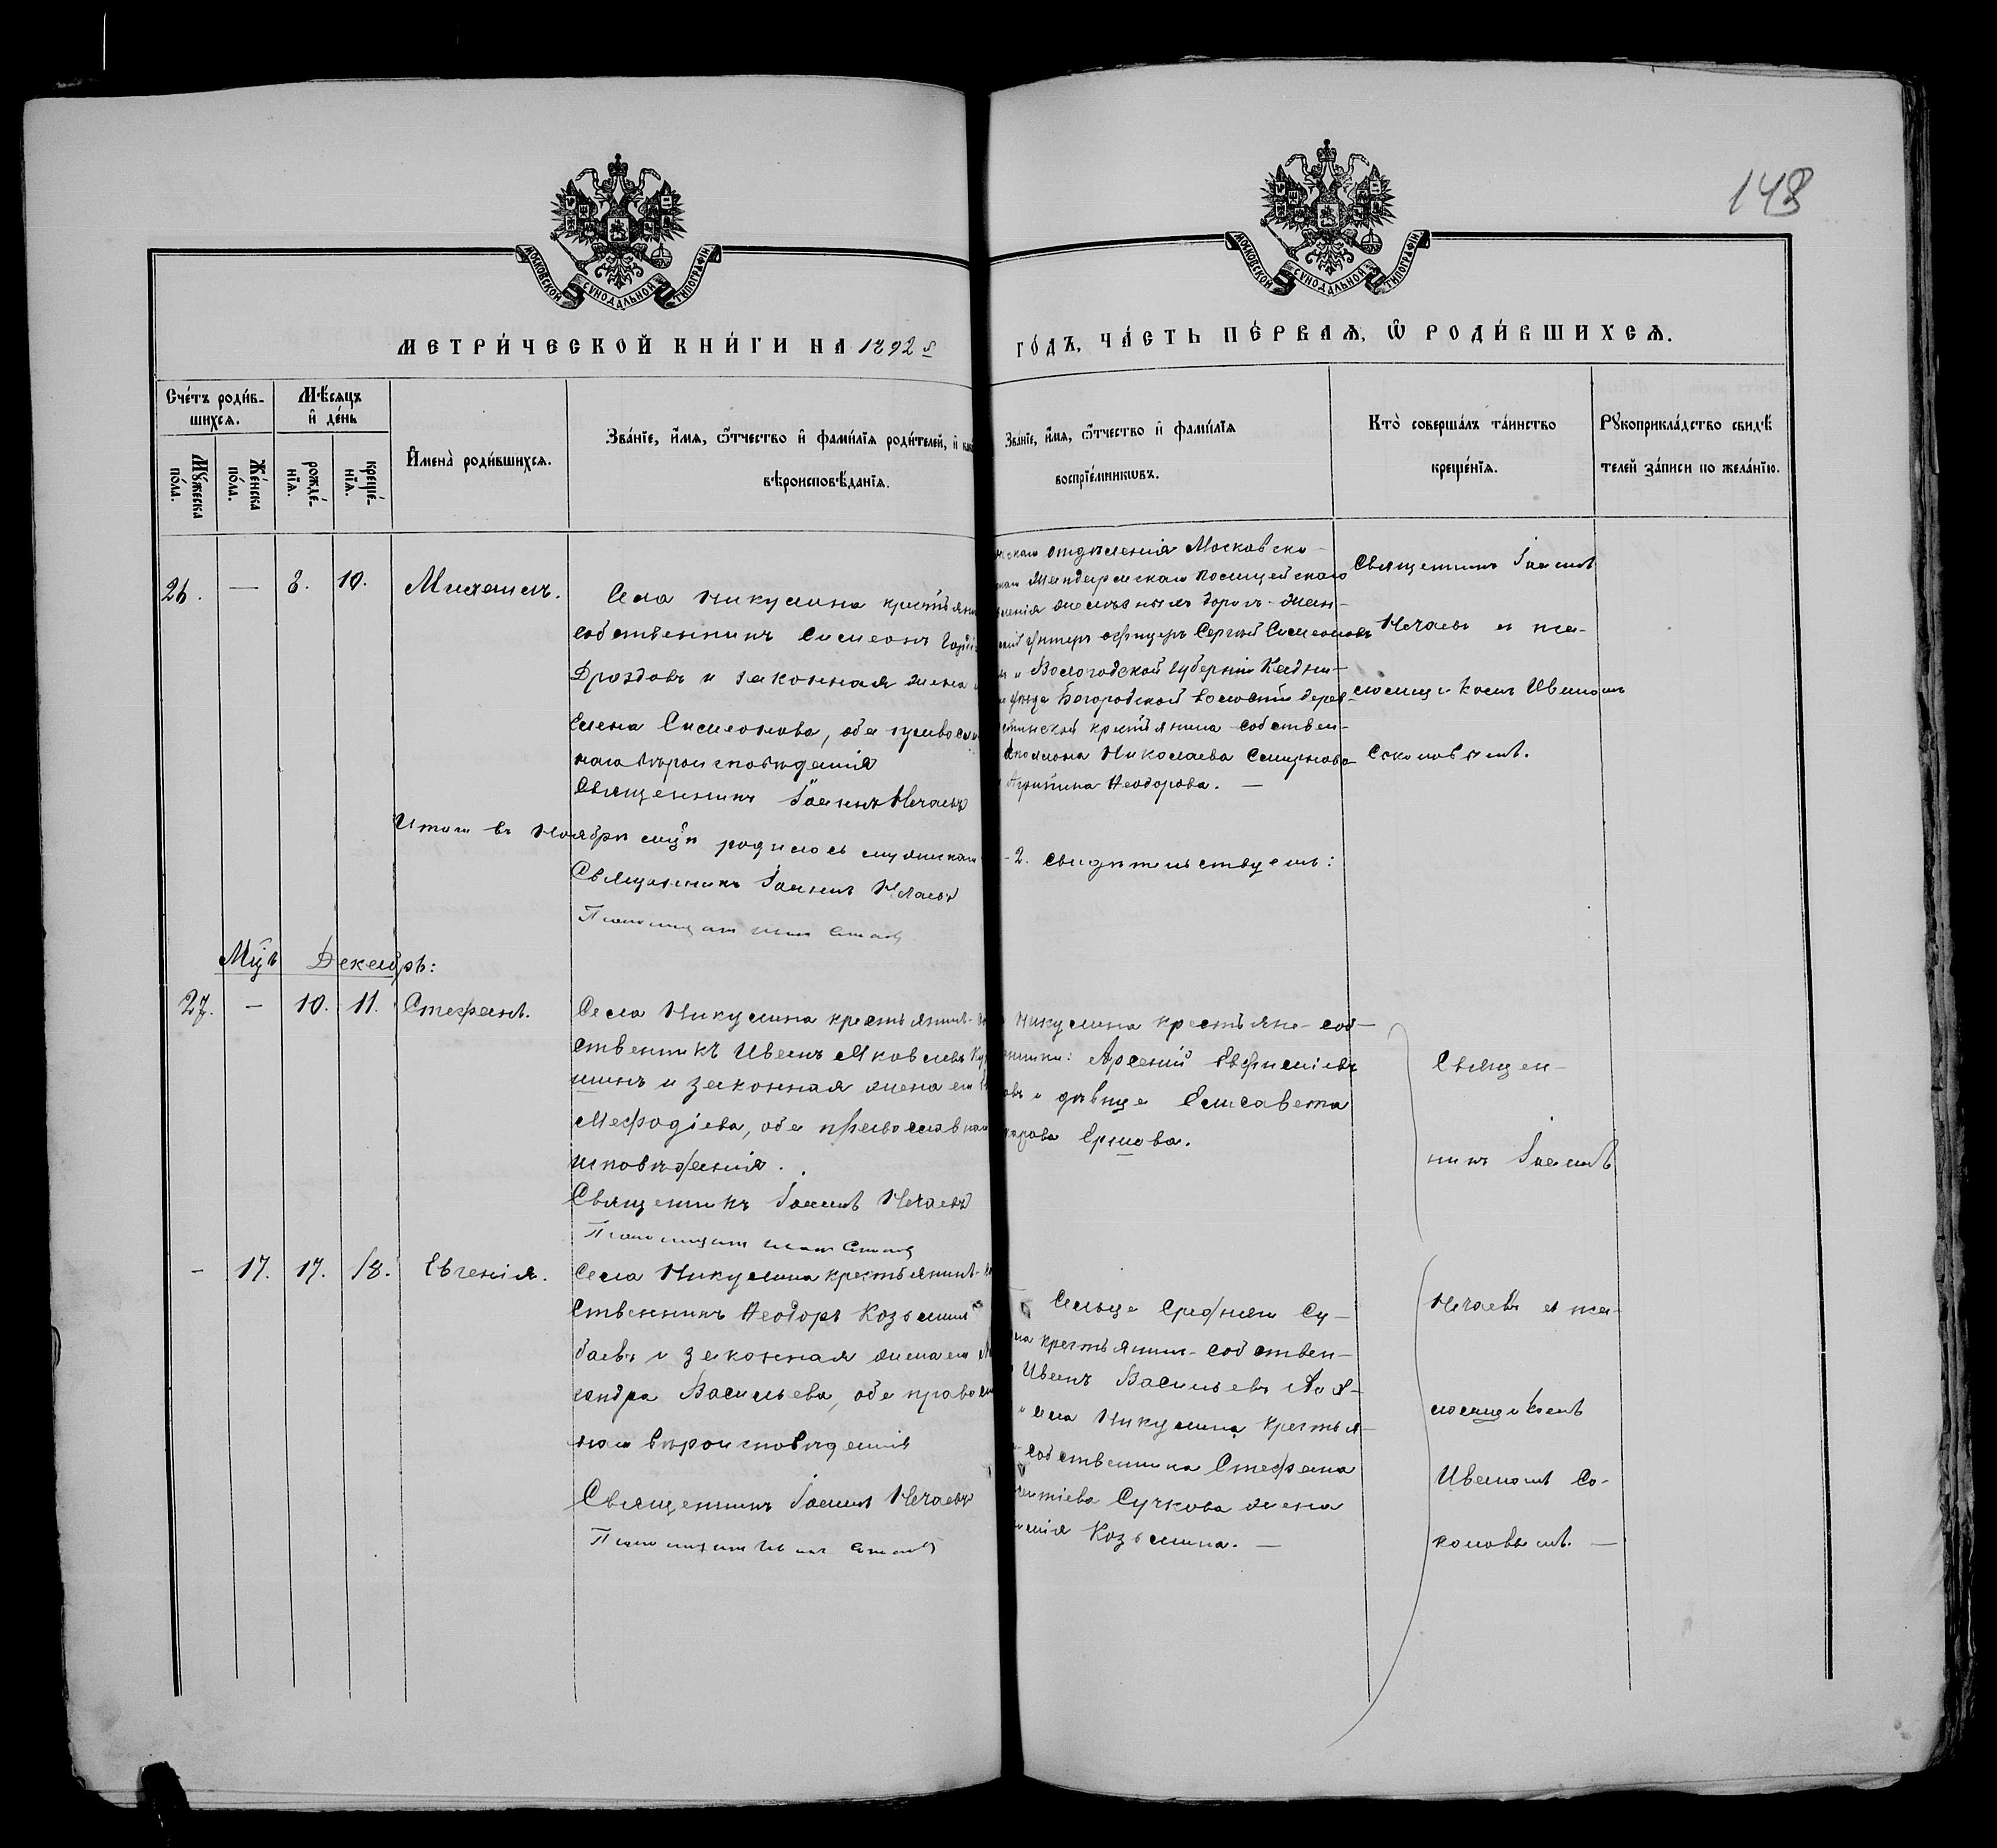 148
МОСКОВСКОЙ СѴНОДАЛЬНОЙ ТИПОГРАФІИ
МОСКОВСКОЙ СѴНОДАЛЬНОЙ ТИПОГРАФІИ
МЕТРИ́ЧЕСКОЙ КНИ́ГИ НА 1892 й
ГО́ДЪ, ЧА́СТЬ ПЕ́РВАѦ, Ѡ РОДИ́ВШИХСѦ.
Сче́тъ роди́в-
шихсѧ.
Мѣ́сѧцъ
и҆ де́нь
Мꙋ́жеска
по́ла.
Же́нска
по́ла.
рожде́-
нїѧ.
креще́-
нїѧ.
И҆мена̀ роди́вшихсѧ.
Зва́нїе, и҆́мѧ, ѻ҆́тчество и҆ фами́лїѧ роди́телей, и҆
вѣроисповѣ́данїѧ.
Зва́нїе, и҆́мѧ, ѻ҆́тчество и҆ фами́лїѧ
воспрїе́мникѡвъ.
Кто̀ соверша́лъ та́инство
креще́нїѧ.
Рꙋкоприкла́дство свидѣ́
телей за́писи по жела́нїю.
26. — 8. 10. Михаилъ.
Села Никулина крестьяни
собственникъ Симеонъ
Дроздовъ и законная жена
Елена Симеонова, оба православ
наго вѣроисповѣданія
Священникъ Іоаннъ Нечаевъ
отдѣленія Московско-
Жандармскаго Полицейскаго
желѣзныхъ дорогъ жан-
унтеръ офицеръ Сергѣй Симеоновъ
и Вологодской губерніи Кадни-
уѣзда Богородской волости дерев-
крестьянина собствен-
Николаева Смирнова
Агрипина Ѳеодорова. —
Священникъ Іоаннъ
Нечаевъ съ пса-
ломщикомъ Иваномъ
Соколовымъ.
Итого въ Ноябрѣ мцѣ родилось мужскаго
- 2. свидѣтельствуемъ:
Священникъ Іоаннъ Нечаевъ
Псаломщикъ Иванъ
Мцъ Декабрь:
27. — 10. 11. Стефанъ.
Села Никулина крестьянинъ-
ственникъ Иванъ Яковлевъ
шинъ и законная жена его
Меѳодіева, оба православнаго
исповѣданія.
Священникъ Іоаннъ Нечаевъ
Псаломщикъ Иванъ
Никулина крестьяне-соб-
Арсеній Евфиміевъ
и дѣвица Елисавета
Ершова.
Священ-
никъ Іоаннъ
— 17. 17. 18. Евгенія.
Села Никулина крестьянинъ-
ственникъ Ѳеодоръ Козьминъ
баевъ и законная жена его
сандра Васильева, оба православ
наго вѣроисповѣданія
Священникъ Іоаннъ Нечаевъ
Псаломщикъ Иванъ
Сельца Средняго Су-
крестьянинъ-собствен-
Иванъ Васильевъ
села Никулина крестья-
собственника Стефана
Сучкова жена
Козьмина. —
Нечаевъ съ пса-
ломщикомъ
Иваномъ Со-
коловымъ. —